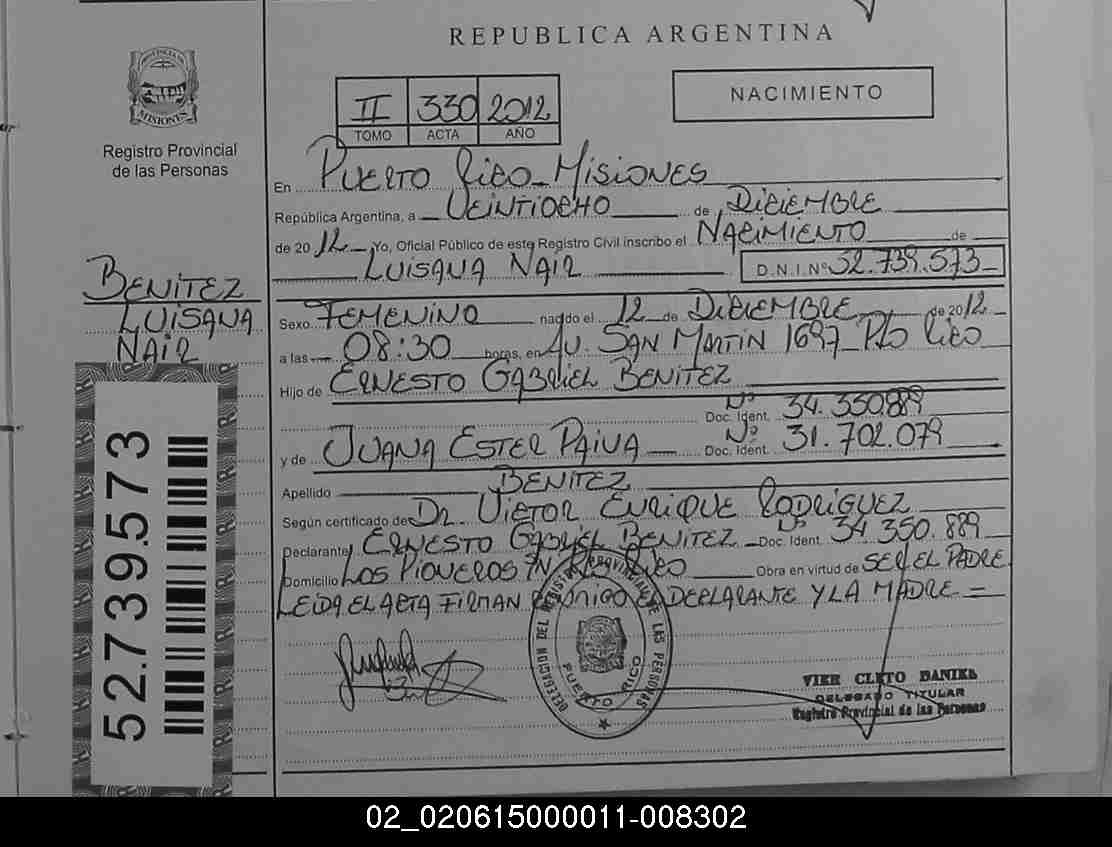 REPUBLICA ARGENTINA
PROVINCIA DE
MISIONES
Registro Provincial
de las Personas
II 330 2012
TOMO ACTA AÑO
NACIMIENTO
En PUERTO RICO - MISIONES
República Argentina, a VEINTIOCHO de DICIEMBRE
de 2012 Yo, Oficial Público de este Registro Civil inscribo el NACIMIENTO de
LUISANA NAIR D.N.I. Nº 52.739.573
BENITEZ
LUISANA
NAIR
Sexo FEMENINO nacido el 12 de DICIEMBRE de 2012
a las 08:30 horas, en AV. SAN MARTIN 1697 PTO RICO
Hijo de ERNESTO GABRIEL BENITEZ
Doc. Ident. Nº 34.350.889
y de JUANA ESTER PAIVA Doc. Ident. Nº 31.702.079
Apellido BENITEZ
Según certificado de DR. VICTOR ENRIQUE RODRIGUEZ
Declarante ERNESTO GABRIEL BENITEZ Doc. Ident. Nº 34.350.889
Domicilio LOS PIONEROS S/N PTO RICO Obra en virtud de SER EL PADRE
LEIDA EL ACTA FIRMAN CONMIGO EL DECLARANTE Y LA MADRE =
DELEGACION DEL REGISTRO PROVINCIAL DE LAS PERSONAS
PUERTO RICO
VIER CLETO DANIEL
DELEGADO TITULAR
Registro Provincial de las Personas
52.739.573
02_020615000011-008302